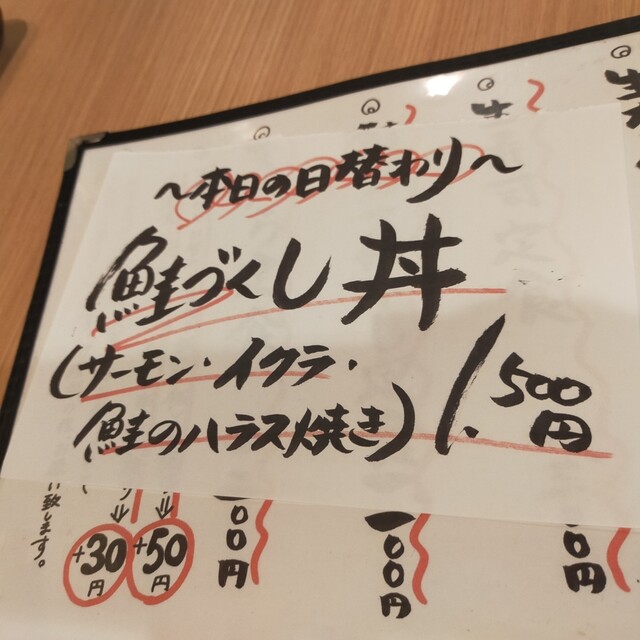 〜本日の日替わり〜
鮭づくし丼
(サーモン・イクラ・
鮭のハラス焼き) 1.500円
致します。
+30円
+50円
00円
100円
00円